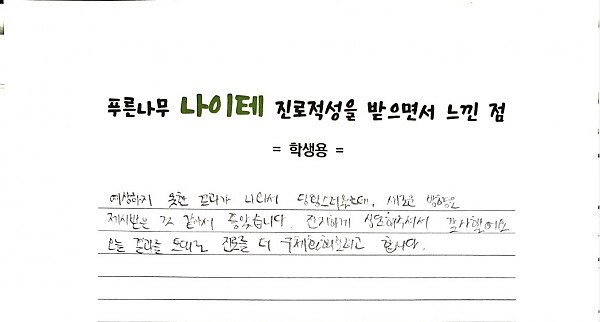 푸른나무 나이테 진로적성을 받으면서 느낀 점
= 학생용 =
예상하지 못한 결과가 나와서 당황스러웠는데, 새로운 방향을
제시받은 것 같아서 좋았습니다. 진지하게 상담해주셔서 감사했어요
오늘 결과를 토대로 진로를 더 구체화해보려고 합니다.